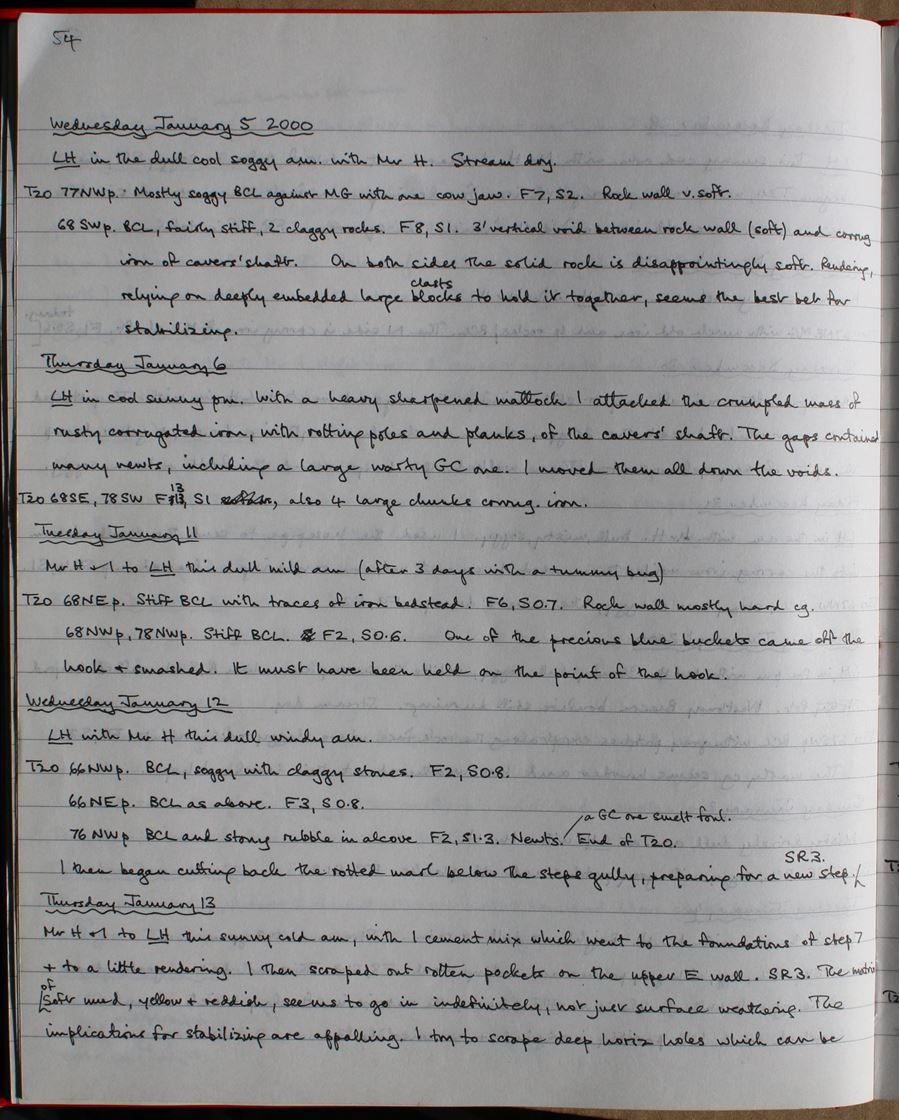 54
Wednesday January 5 2000
LH in the dull cool soggy am. with Mr H. Stream dry.
T20 77NWp. Mostly soggy BCL against MG with one cow jaw. F7, S2. Rock wall v. soft.
68SWp. BCL, fairly stiff, 2 claggy rocks. F8, S1. 3' vertical void between rock wall (soft) and corrug
iron of cavers' shaft. On both sides the solid rock is disappointingly soft. Rendering,
clasts
relying on deeply embedded large blocks to hold it together, seems the best bet for
stabilizing.
Thursday January 6
LH in cool sunny pm. With a heavy sharpened mattock I attacked the crumpled mass of
rusty corrugated iron, with rotting poles and planks, of the cavers' shaft. The gaps contained
many newts, including a large warty GC one. I moved them all down the voids.
T20 68SE, 78SW F13, S1, also 4 large chunks corrug. iron.
Tuesday January 11
Mr H + I to LH this dull mild am (after 3 days with a tummy bug)
T20 68NEp. Stiff BCL with traces of iron bedstead. F6, S0.7. Rock wall mostly hard cg.
68NWp, 78NWp. Stiff BCL. F2, S0.6. One of the precious blue buckets came off the
hook + smashed. It must have been held on the point of the hook.
Wednesday January 12
LH with Mr H this dull windy am.
T20 66NWp. BCL, soggy with claggy stones. F2, S0.8.
66NEp. BCL as above. F3, S0.8.
a GC one smelt foul.
76NWp BCL and stony rubble in alcove F2, S1.3. Newts. / End of T20.
SR3.
I then began cutting back the rotted marl below the steps gully, preparing for a new step.
Thursday January 13
Mr H + I to LH this sunny cold am, with 1 cement mix which went to the foundations of step 7
+ to a little rendering. I then scraped out rotten pockets on the upper E wall. SR3. The matrix
of
soft mud, yellow + reddish, seems to go in indefinitely, not just surface weathering. The
implications for stabilizing are appalling. I try to scrape deep horiz holes which can be